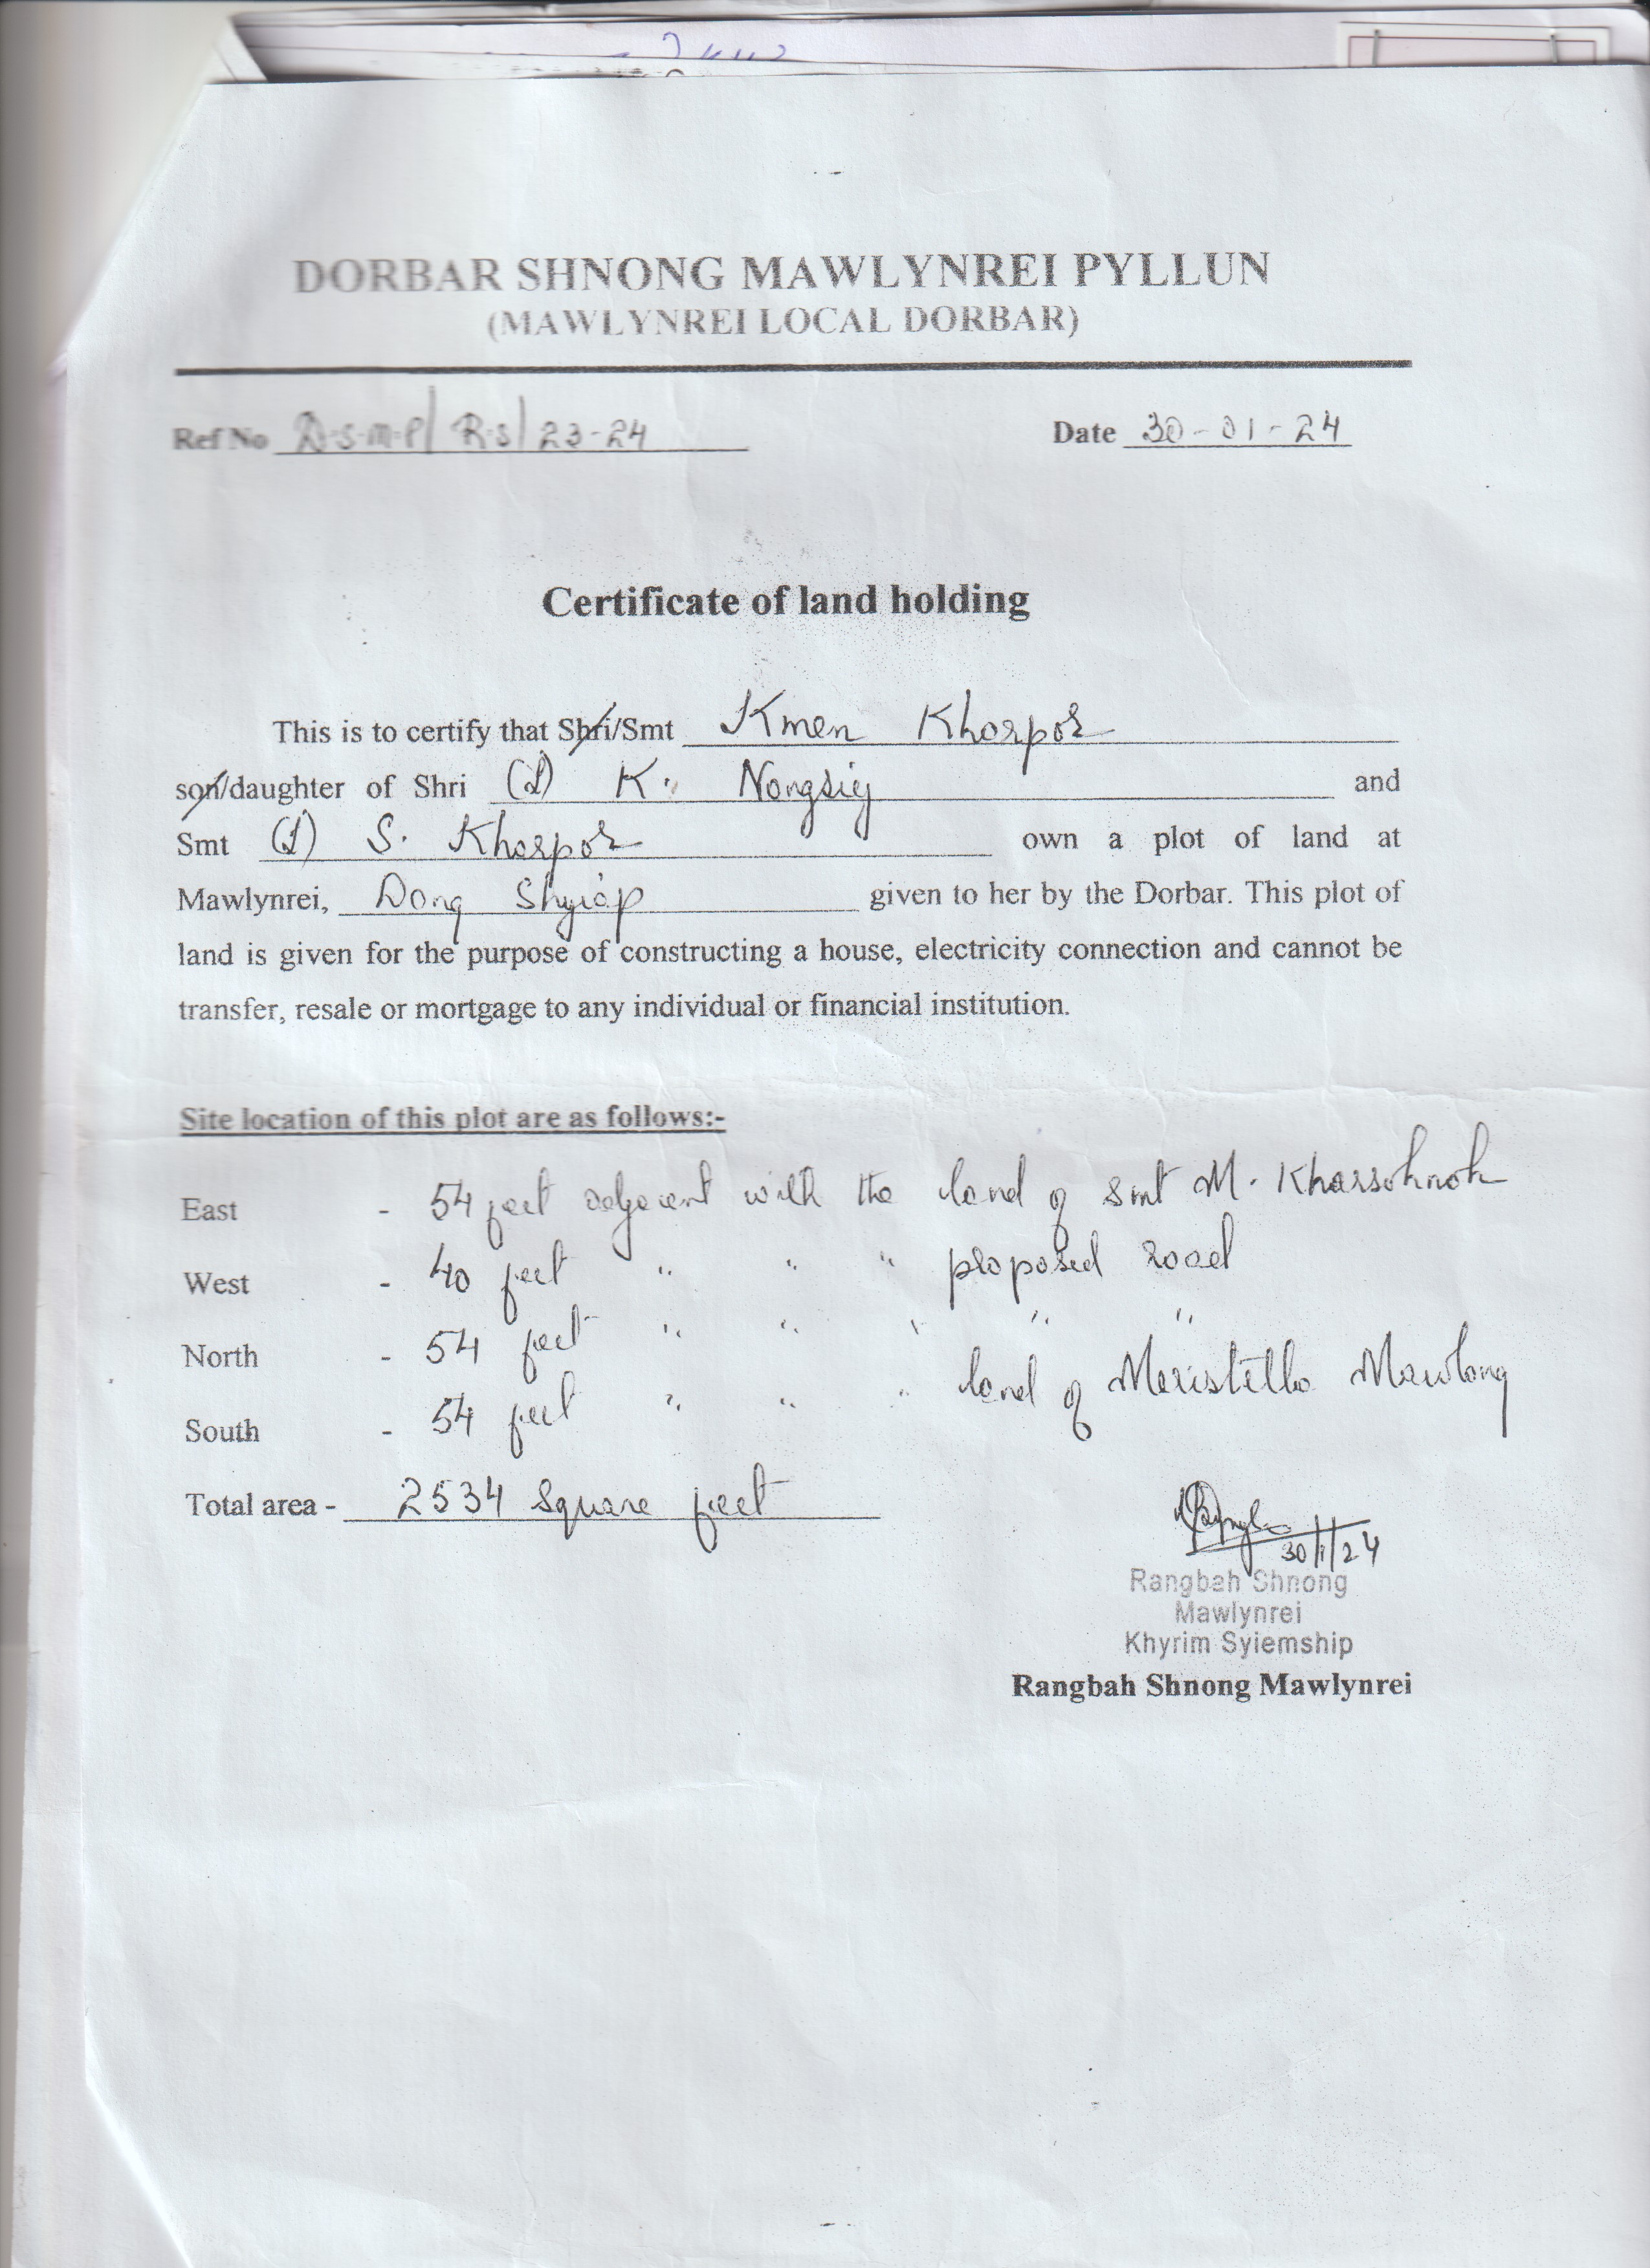 DORBAR SHNONG MAWLYNREI PYLLUN
(MAWLYNREI LOCAL DORBAR)
Ref No D.S.M.P/ R.S/ 23-24 Date 30-01-24
Certificate of land holding
This is to certify that Shri/Smt Kmen Kharpor
son/daughter of Shri (L) K. Nongsiej and
Smt (L) S. Kharpor own a plot of land at
Mawlynrei, Dong Shyiap given to her by the Dorbar. This plot of
land is given for the purpose of constructing a house, electricity connection and cannot be
transfer, resale or mortgage to any individual or financial institution.
Site location of this plot are as follows:-
East - 54 feet adjacent with the land of smt M. Kharsohnoh
West - 40 feet " " " proposed road
North - 54 feet " " " " "
South - 54 feet " " " land of Meristilla Mawlong
Total area - 2534 square feet
30/1/24
Rangbah Shnong
Mawlynrei
Khyrim Syiemship
Rangbah Shnong Mawlynrei